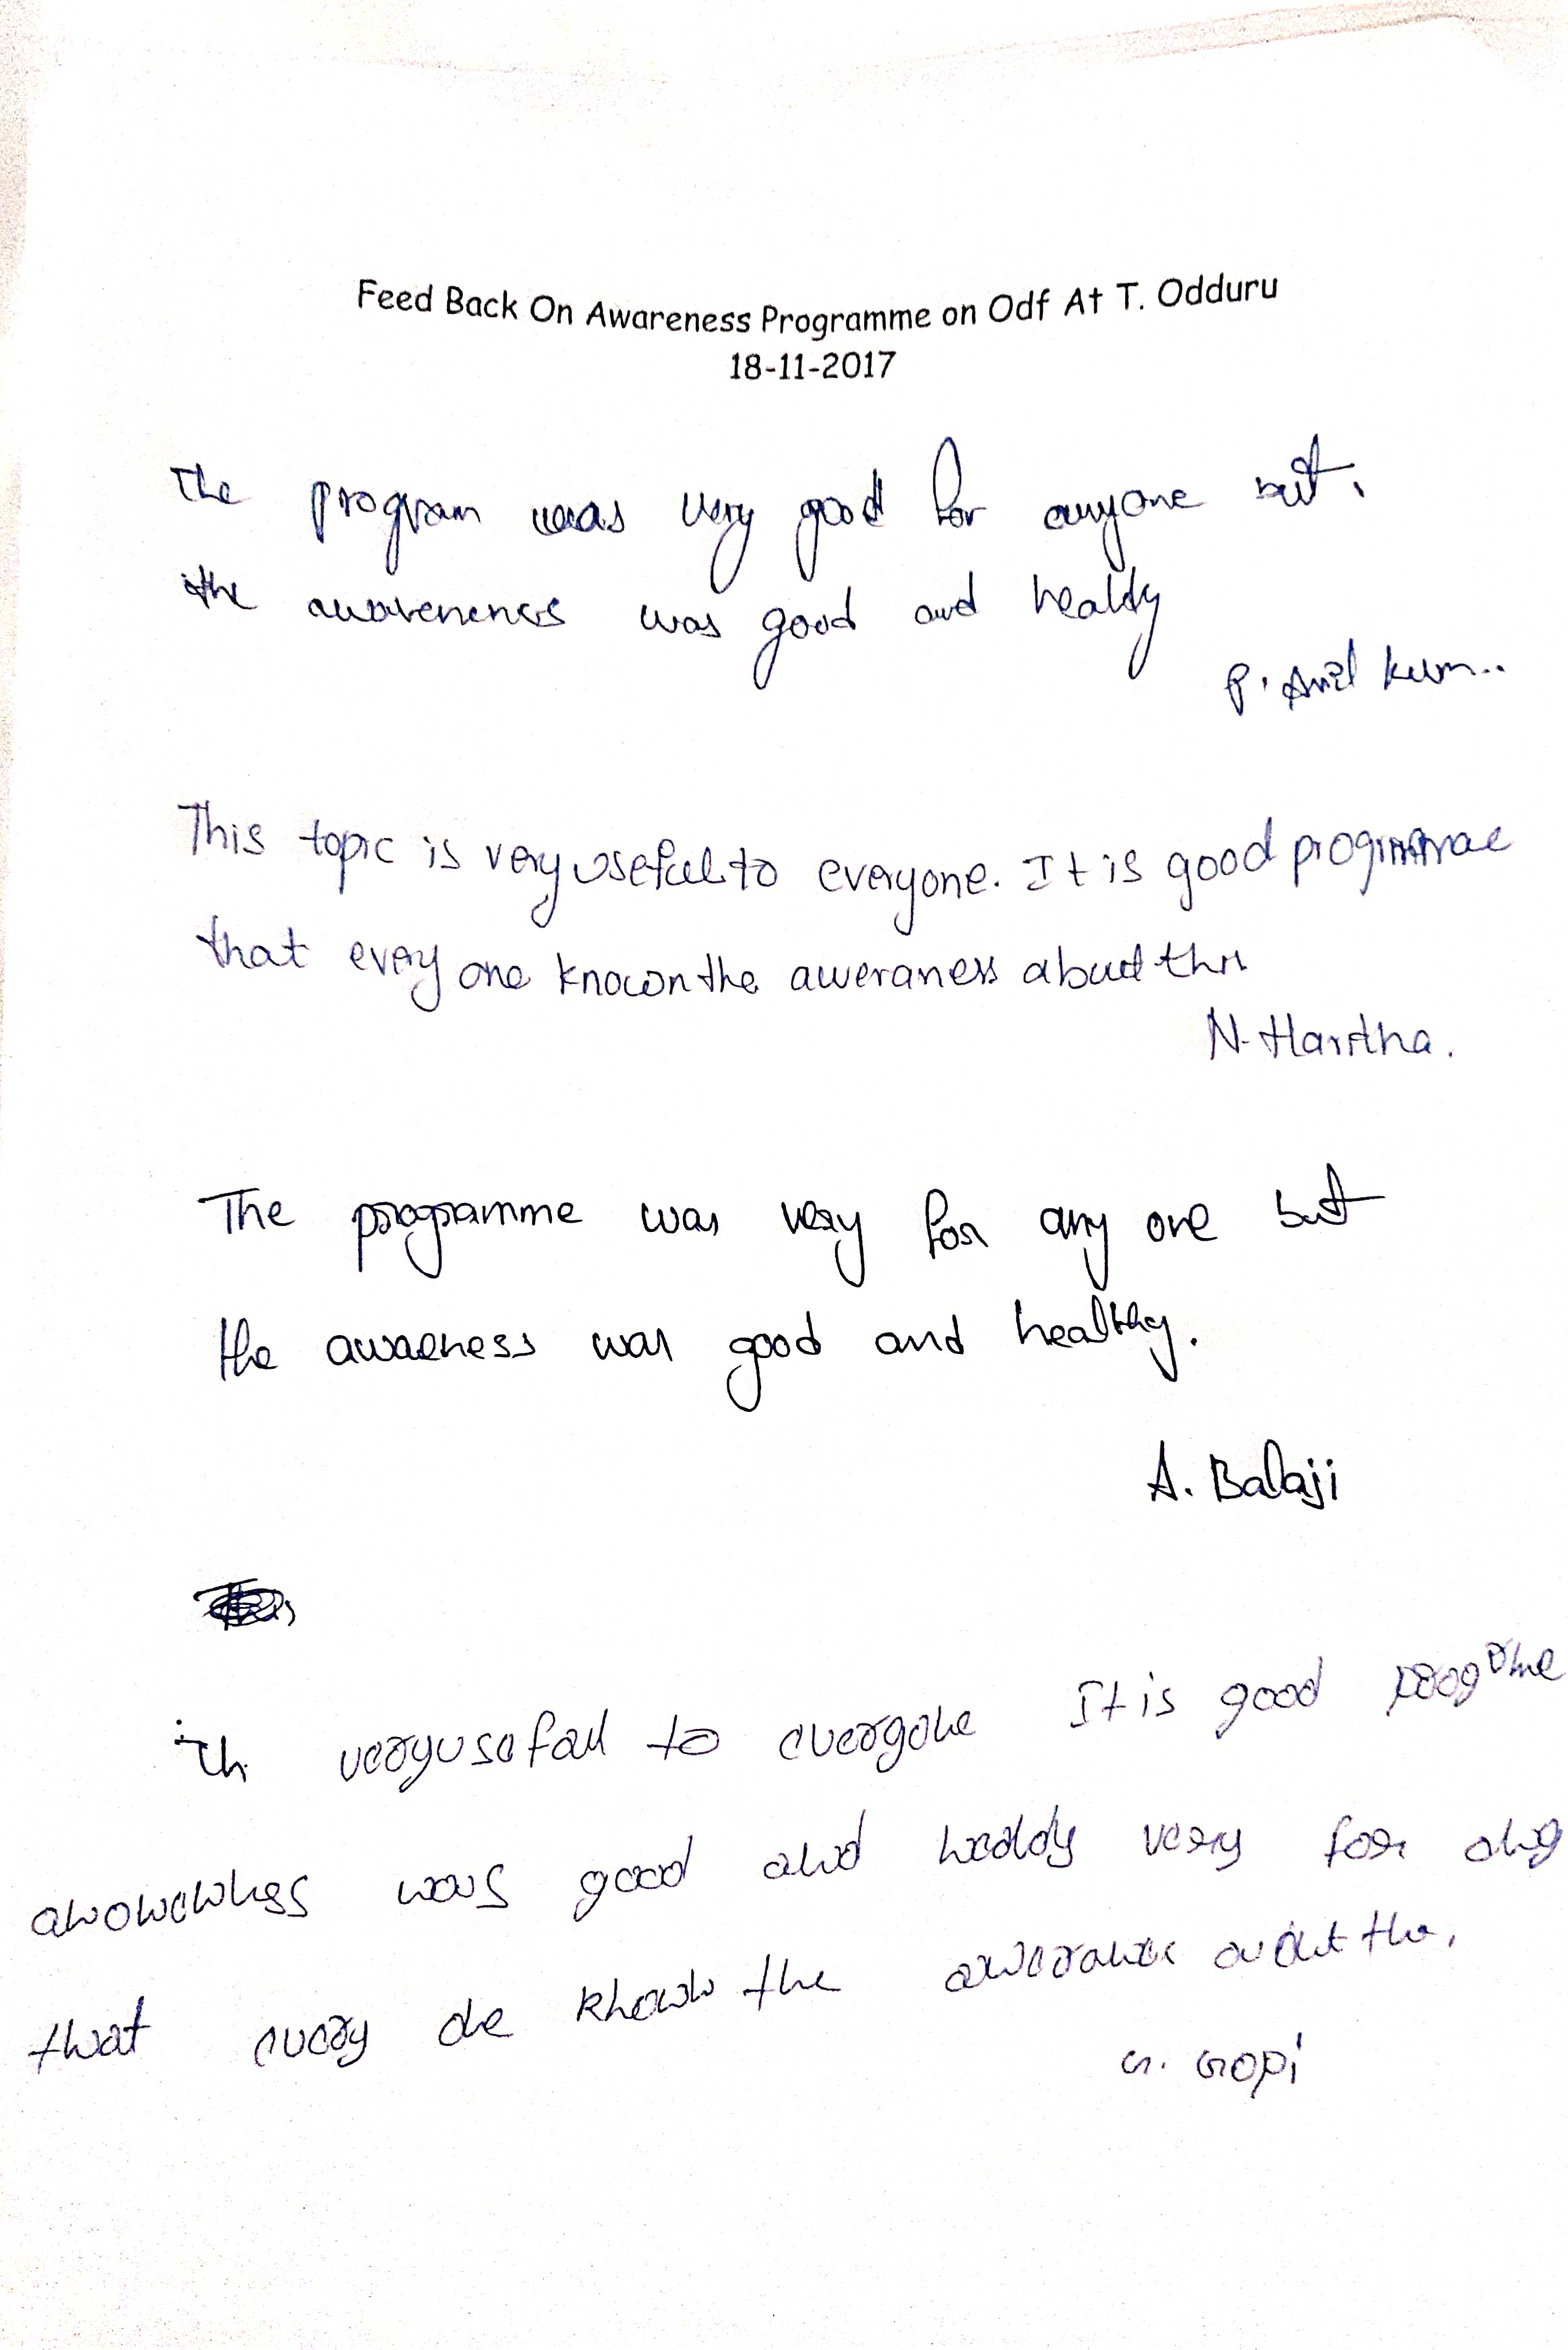 Feed Back On Awareness Programme on Odf At T. Odduru
18-11-2017
The program was very good for anyone but,
the awarenenes was good and healdy
P. Anil Kum..
This topic is very useful to everyone. It is good programmae
that every one known the aweraness about this
N. Haritha.
The programme was very for any one but
the awaeness was good and healthy.
A. Balaji
veryusefall to everyone It is good
was good and heddy very for any
that every one known the
G. Gopi